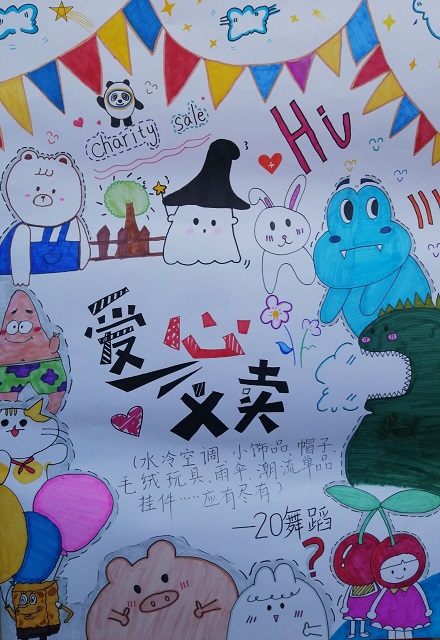 charity sale
Hi
爱心
义卖
(水冷空调,小饰品,帽子
毛绒玩具,雨伞,潮流单品
挂件……应有尽有)
—20舞蹈
?